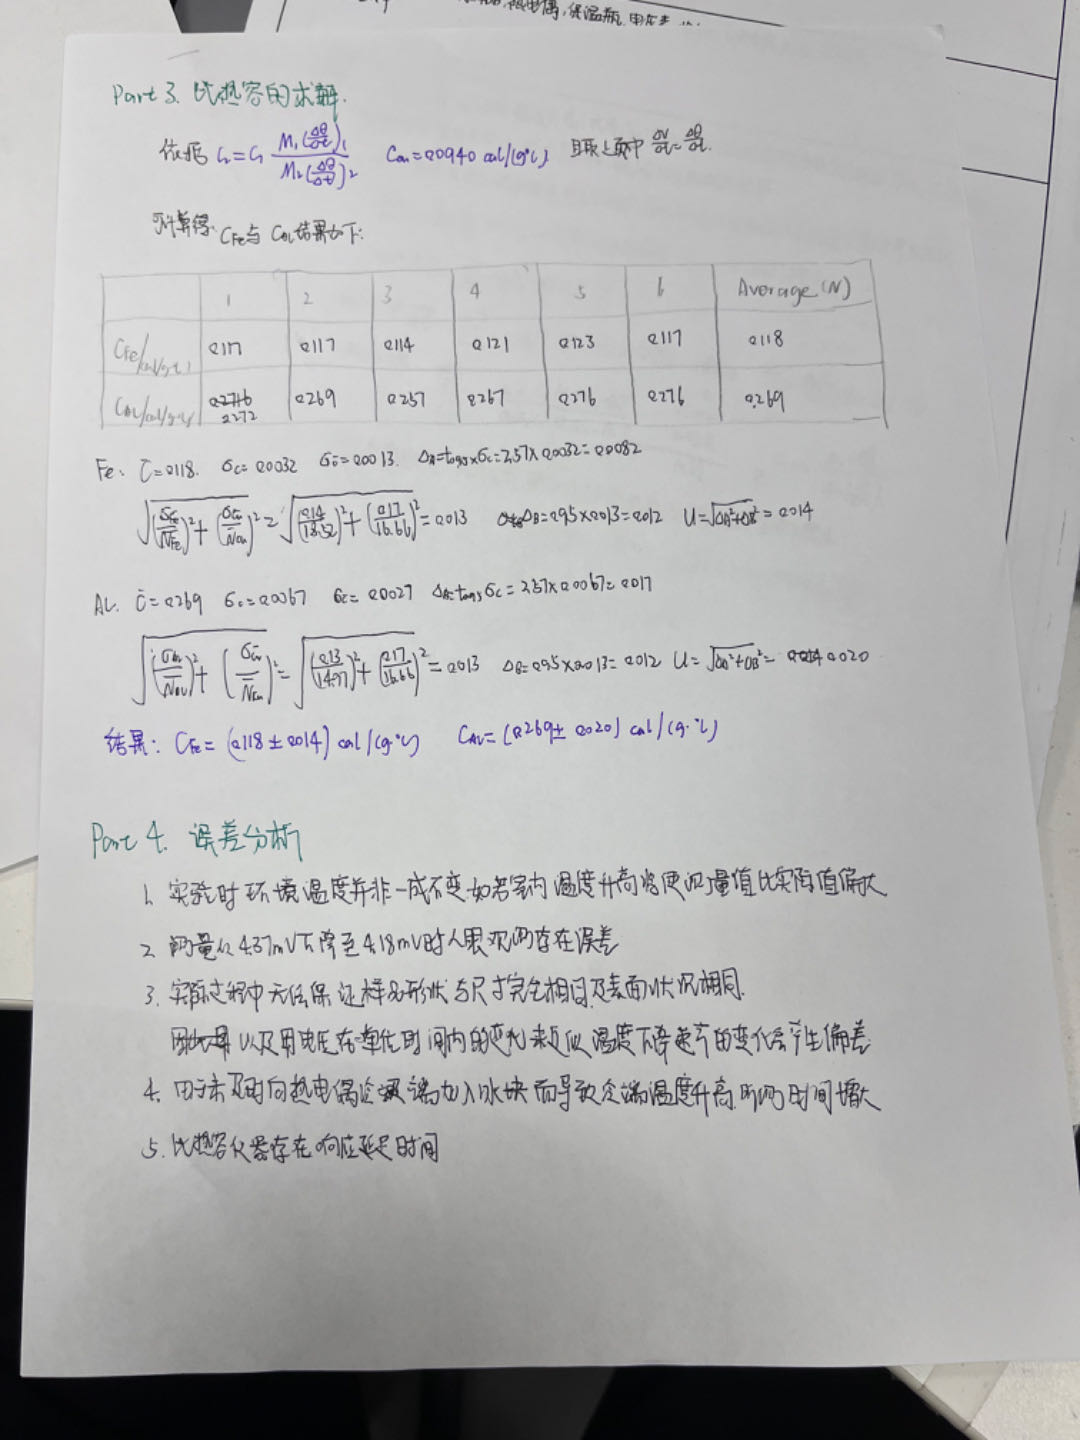 热电偶,保温瓶,电压表
Part 3. 比热容的求解.
依据 C₂=C₁ M₁(Δθ/Δt)₁ / M₂(Δθ/Δt)₂ Ccu=0.0940 cal/(g·℃) 且取上页中
可计算得: CFe与 CAl结果如下:
1 2 3 4 5 6 Average(N)
CFe/cal/(g·℃) 0.117 0.117 0.114 0.121 0.123 0.117 0.118
CAl/cal/(g·℃) 0.272 0.269 0.257 0.267 0.276 0.276 0.269
Fe: C̄=0.118. σc=0.0032 σc̄=0.0013. ΔA=t0.95×σc=2.57×0.0032=0.0082
√((σFe/N̄Fe)²+(σCu/N̄Cu)²)=√((0.14/18.52)²+(0.17/16.66)²)=0.013 ΔB=0.95×0.013=0.012 U=√(ΔA²+ΔB²)=0.014
Al. C̄=0.269 σc=0.0067 σc̄=0.0027 ΔA=t0.95σc=2.57×0.0067=0.017
√((σAl/N̄Al)²+(σCu/N̄Cu)²)=√((0.13/14.97)²+(0.17/16.66)²)=0.013 ΔB=0.95×0.013=0.012 U=√(ΔA²+ΔB²)=0.020
结果: CFe=(0.118±0.014) cal/(g·℃) CAl=(0.269±0.020) cal/(g·℃)
Part 4. 误差分析
1. 实验时环境温度并非一成不变.如若室内温度升高将使测量值比实际值偏大
2. 测量从4.37mV下降至4.18mV时人眼观测存在误差
3. 实际过程中无法保证样品形状与尺寸完全相同及表面状况相同.
以及用电压在单位时间内的变化来近似温度下降速率的变化会产生偏差
4. 由于未及时向热电偶冷端加入冰块而导致冷端温度升高.所测时间增大
5. 比热容仪器存在响应延迟时间